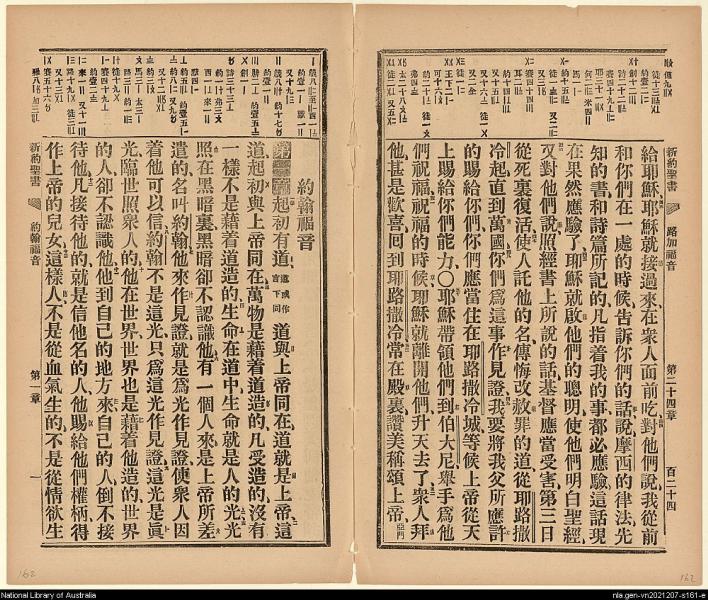 新約聖書 路加福音 第二十四章 百二十四
給耶穌耶穌就接過來在衆人面前吃對他們說我從前
和你們在一處的時候告訴你們的話說摩西的律法先
知的書和詩篇所記的凡指着我的事都必應驗這話現
在果然應驗了耶穌就啟他們的聰明使他們明白聖經
又對他們說照經書上所說的話基督應當受害第三日
從死裏復活使人託他的名傳悔改赦罪的道從耶路撒
冷起直到萬國你們爲這事作見證我要將我父所應許
的賜給你們你們應當住在耶路撒冷城等候上帝從天
上賜給你們能力〇耶穌帶領他們到伯大尼舉手爲他
們祝福祝福的時候耶穌就離開他們升天去了衆人拜
他甚是歡喜回到耶路撒冷常在殿裏讚美稱頌上帝亞們
約翰福音
第一章起初有道道或作言下同道與上帝同在道就是上帝這
道起初與上帝同在萬物是藉着道造的凡受造的沒有
一樣不是藉着道造的生命在道中生命就是人的光光
照在黑暗裏黑暗卻不認識他有一個人來是上帝所差
遣的名叫約翰他來作見證就是爲光作見證使衆人因
着他可以信約翰不是這光只爲這光作見證這光是眞
光臨世照衆人的他在世界世界也是藉着他造的世界
的人卻不認識他他到自己的地方來自己的人倒不接
待他凡接待他的就是信他名的人他賜給他們權柄得
作上帝的兒女這樣人不是從血氣生的不是從情欲生
新約聖書 約翰福音 第一章 一
162
162
National Library of Australia
nla.gen-vn2021207-s161-e